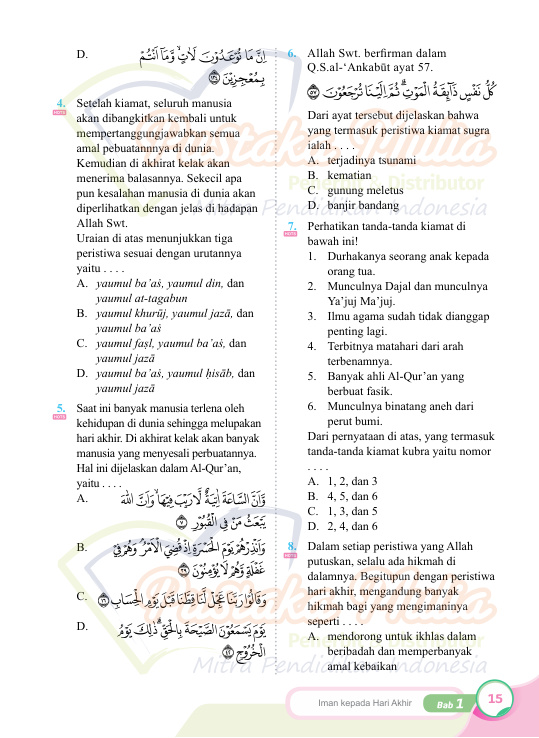 D. اِنَّ مَا تُوْعَدُوْنَ لَاٰتٍۙ وَّمَآ اَنْتُمْ
بِمُعْجِزِيْنَ ١٣٤
4. Setelah kiamat, seluruh manusia
HOTS
akan dibangkitkan kembali untuk
mempertanggungjawabkan semua
amal pebuatannnya di dunia.
Kemudian di akhirat kelak akan
menerima balasannya. Sekecil apa
pun kesalahan manusia di dunia akan
diperlihatkan dengan jelas di hadapan
Allah Swt.
Uraian di atas menunjukkan tiga
peristiwa sesuai dengan urutannya
yaitu . . . .
A. yaumul ba'aṡ, yaumul din, dan
yaumul at-tagabun
B. yaumul khurūj, yaumul jazā, dan
yaumul ba'aṡ
C. yaumul faṣl, yaumul ba'aṡ, dan
yaumul jazā
D. yaumul ba'aṡ, yaumul ḥisāb, dan
yaumul jazā
5. Saat ini banyak manusia terlena oleh
HOTS
kehidupan di dunia sehingga melupakan
hari akhir. Di akhirat kelak akan banyak
manusia yang menyesali perbuatannya.
Hal ini dijelaskan dalam Al-Qur'an,
yaitu . . . .
A. وَّاَنَّ السَّاعَةَ اٰتِيَةٌ لَّا رَيْبَ فِيْهَاۙ وَاَنَّ اللّٰهَ
يَبْعَثُ مَنْ فِى الْقُبُوْرِ ٧
B. وَاَنْذِرْهُمْ يَوْمَ الْحَسْرَةِ اِذْ قُضِيَ الْاَمْرُۘ وَهُمْ فِيْ
غَفْلَةٍ وَّهُمْ لَا يُؤْمِنُوْنَ ٣٩
C. وَقَالُوْا رَبَّنَا عَجِّلْ لَّنَا قِطَّنَا قَبْلَ يَوْمِ الْحِسَابِ ١٦
D. يَوْمَ يَسْمَعُوْنَ الصَّيْحَةَ بِالْحَقِّۗ ذٰلِكَ يَوْمُ
الْخُرُوْجِ ٤٢
6. Allah Swt. berfirman dalam
Q.S.al-'Ankabūt ayat 57.
كُلُّ نَفْسٍ ذَاۤىِٕقَةُ الْمَوْتِۗ ثُمَّ اِلَيْنَا تُرْجَعُوْنَ ٥٧
Dari ayat tersebut dijelaskan bahwa
yang termasuk peristiwa kiamat sugra
ialah . . . .
A. terjadinya tsunami
B. kematian
C. gunung meletus
D. banjir bandang
7. Perhatikan tanda-tanda kiamat di
HOTS
bawah ini!
1. Durhakanya seorang anak kepada
orang tua.
2. Munculnya Dajal dan munculnya
Ya'juj Ma'juj.
3. Ilmu agama sudah tidak dianggap
penting lagi.
4. Terbitnya matahari dari arah
terbenamnya.
5. Banyak ahli Al-Qur'an yang
berbuat fasik.
6. Munculnya binatang aneh dari
perut bumi.
Dari pernyataan di atas, yang termasuk
tanda-tanda kiamat kubra yaitu nomor
. . . .
A. 1, 2, dan 3
B. 4, 5, dan 6
C. 1, 3, dan 5
D. 2, 4, dan 6
8. Dalam setiap peristiwa yang Allah
HOTS
putuskan, selalu ada hikmah di
dalamnya. Begitupun dengan peristiwa
hari akhir, mengandung banyak
hikmah bagi yang mengimaninya
seperti . . . .
A. mendorong untuk ikhlas dalam
beribadah dan memperbanyak
amal kebaikan
Mitra Pendidikan Indonesia
Mitra Pendidikan Indonesia
Iman kepada Hari Akhir Bab 1 15